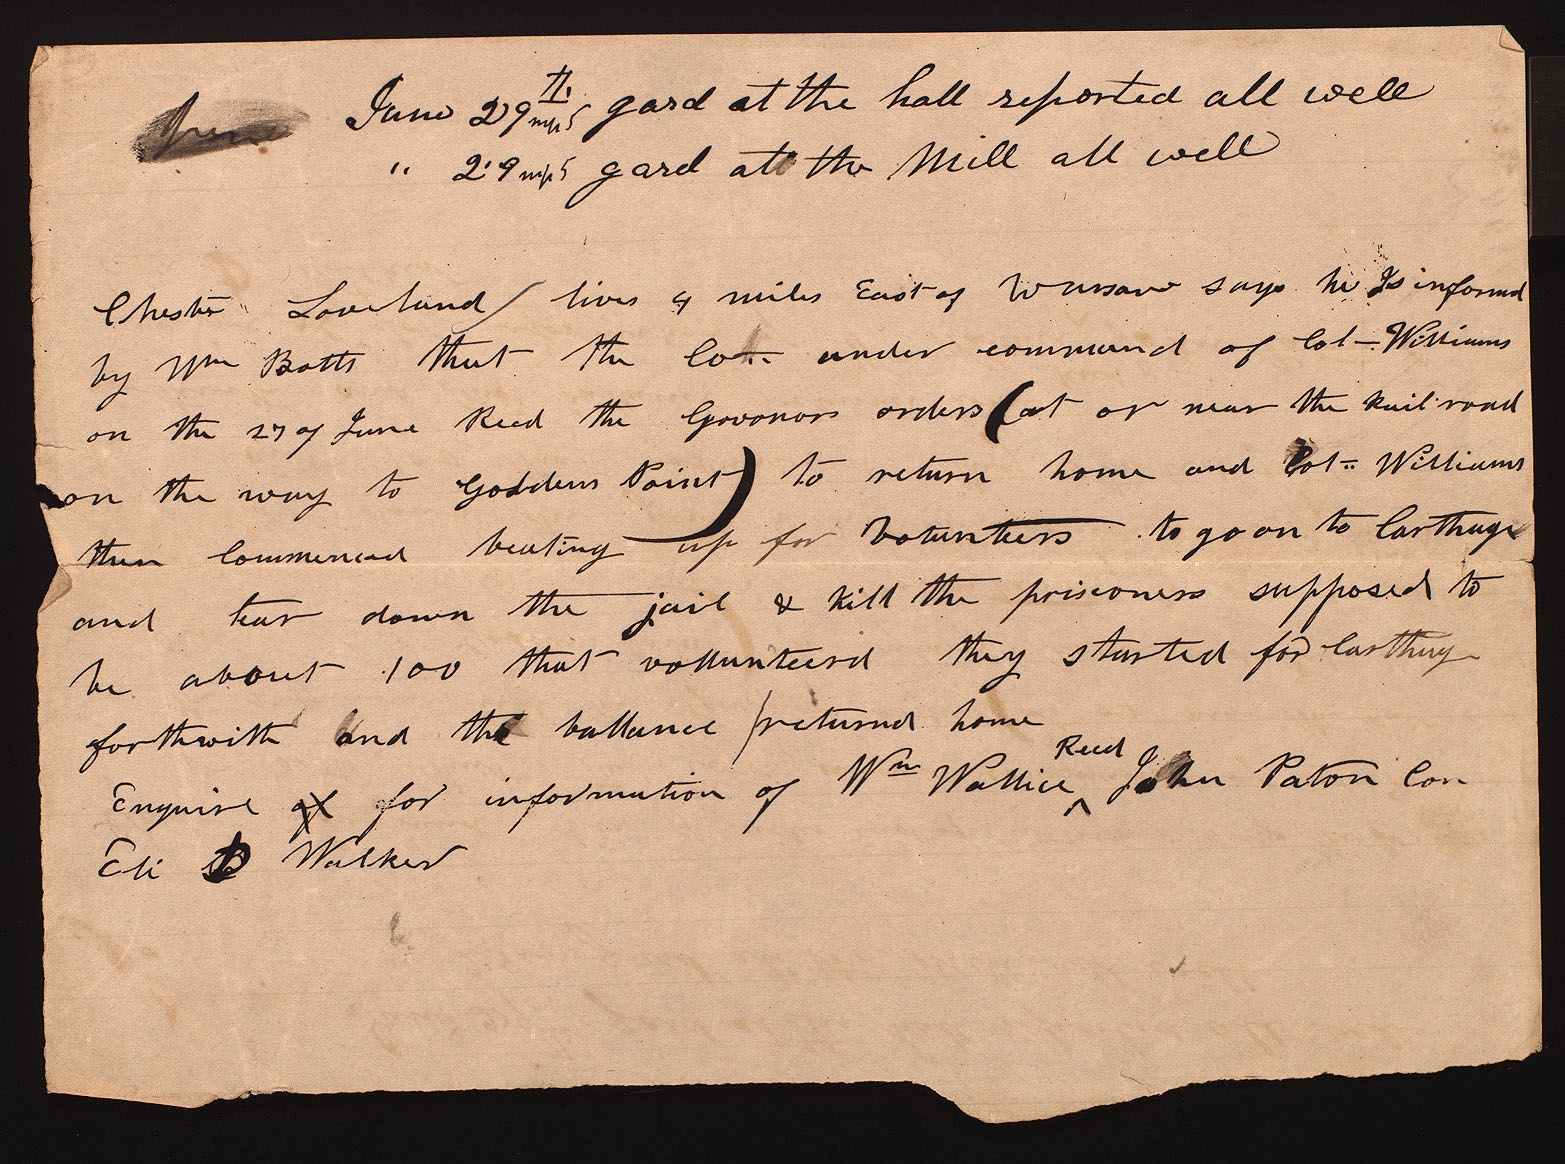 June 29th gard at the hall reported all well
" 29 gard at the Mill all well
Chester Loveland lives 4 miles East of Warsaw says he Is informd
by Wm Batts that the Co.. under command of Col- Williams
on the 27 of June Recd the Govonors orders (at or near the Rail road
on the way to Goldens Point) to return home and Col.. Williams
then Commenced beating up for Volunteers to go on to Carthage
and tear down the jail & kill the prisioners supposed to
be about 100 that vollunteerd they started for Carthage
forthwith and the ballance returnd home
Enquire of for information of Wm Wallice Recd John Paton Con
Eli B Walker